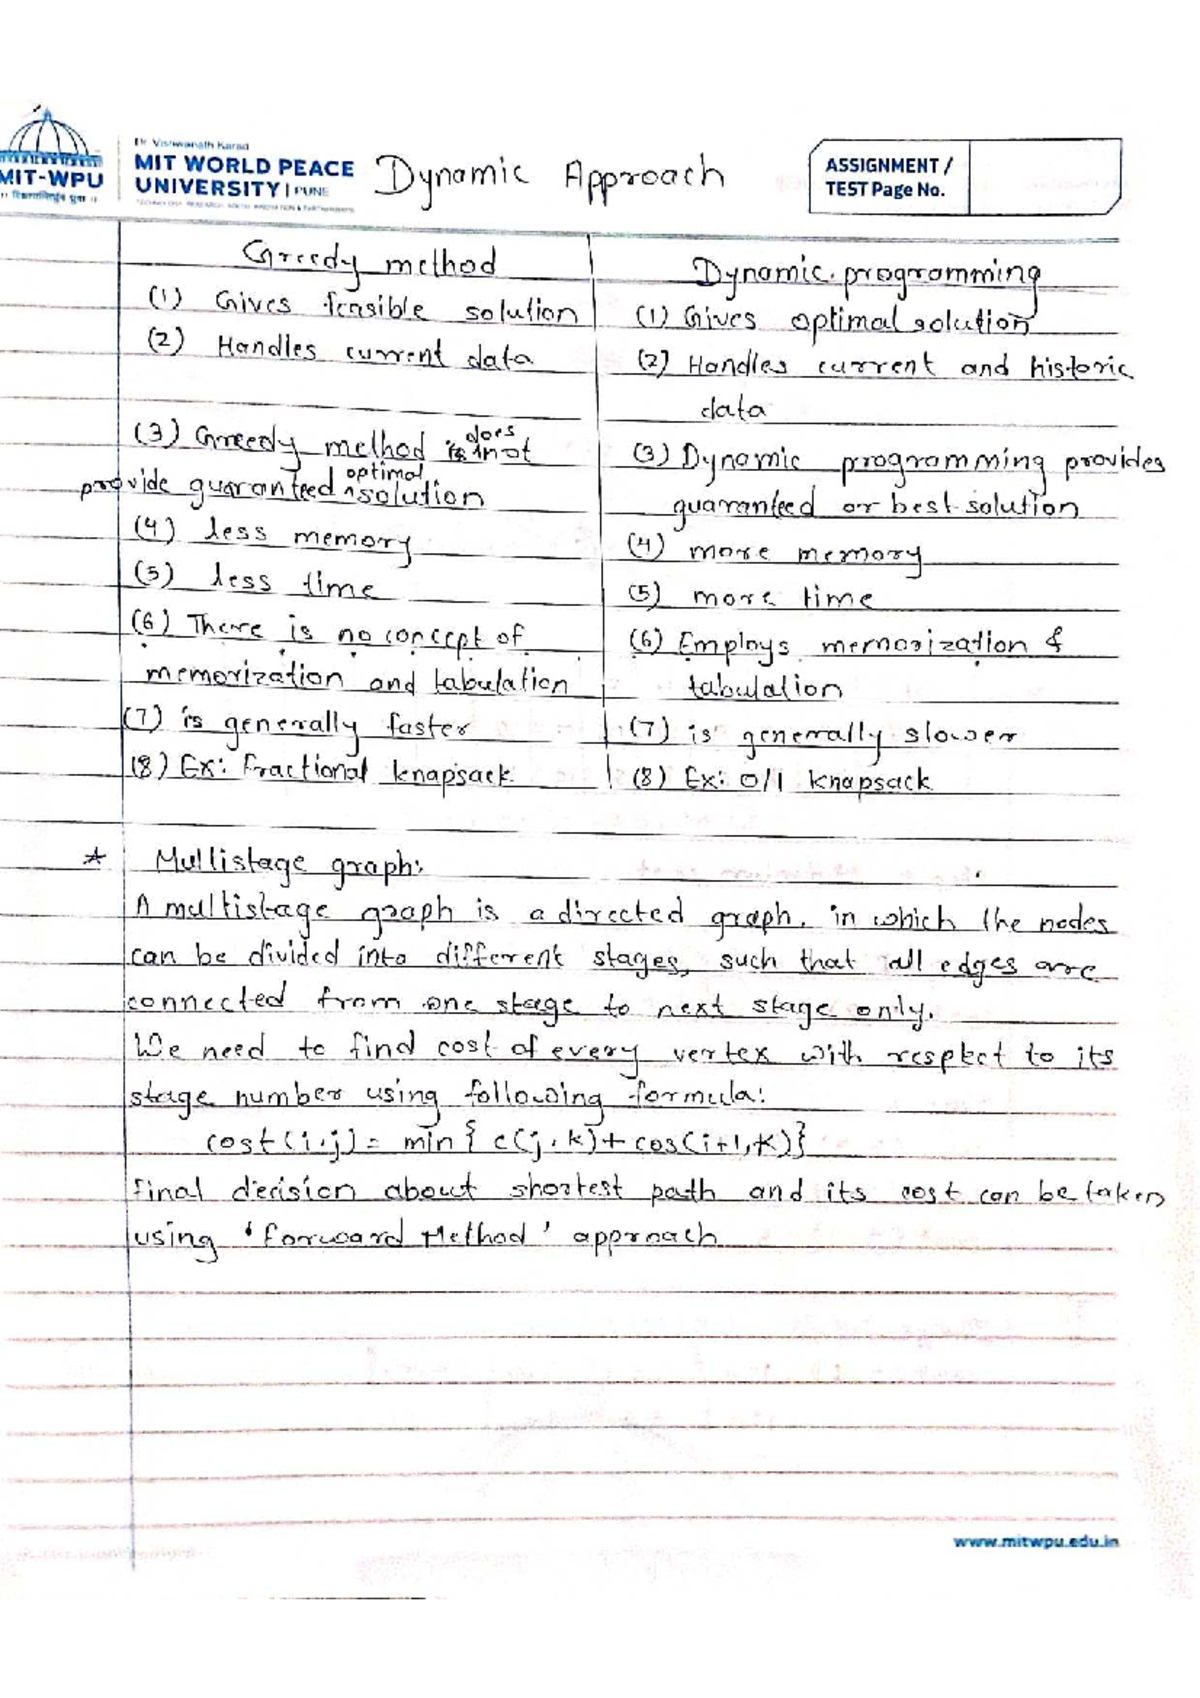 Dr. Vishwanath Karad
MIT WORLD PEACE
UNIVERSITY | PUNE
TECHNOLOGY, RESEARCH, SOCIAL INNOVATION & PARTNERSHIPS
MIT-WPU
Dynamic Approach
ASSIGNMENT /
TEST Page No.
Greedy method
(1) Gives feasible solution
(2) Handles current data
(3) Greedy method does not
provide guaranteed optimal solution
(4) less memory
(5) less time
(6) There is no concept of
memorization and tabulation
(7) is generally faster
(8) Ex: Fractional knapsack
Dynamic programming
(1) Gives optimal solution
(2) Handles current and historic
data
(3) Dynamic programming provides
guaranteed or best solution
(4) more memory
(5) more time
(6) Employs memorization &
tabulation
(7) is generally slower
(8) Ex: 0/1 knapsack
* Multistage graph:
A multistage graph is a directed graph. in which the nodes
can be divided into different stages, such that all edges are
connected from one stage to next stage only.
We need to find cost of every vertex with respect to its
stage number using following formula:
cost(i,j) = min{c(j,k)+cos(i+1,k)}
Final decision about shortest path and its cost can be taken
using 'Forward Method' approach
www.mitwpu.edu.in